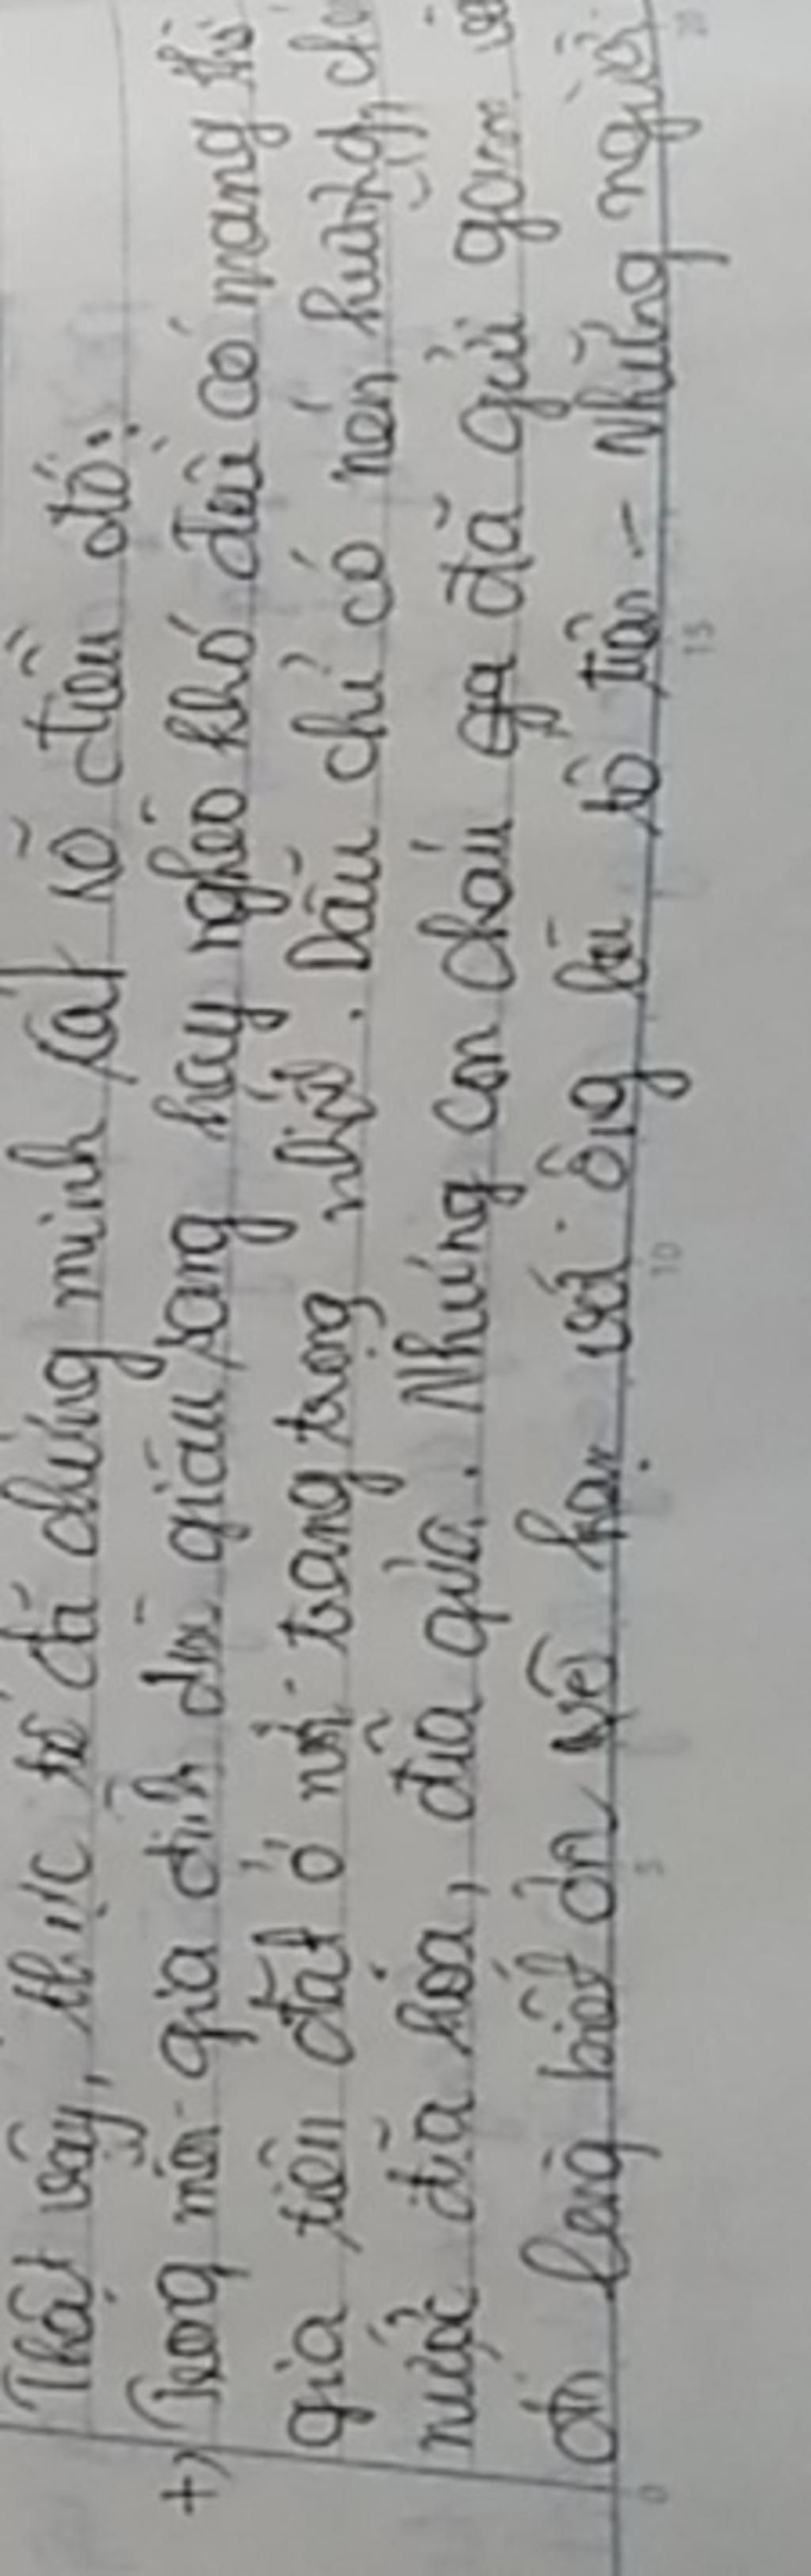 Thật vậy, thực tế đã chứng minh rất rõ điều đó:
+) Trong mỗi gia đình dù giàu sang hay nghèo khó đều có mang thờ
gia tiên đặt ở nơi trang trọng nhất. Dẫu chỉ có nén hương, ché
nước đĩa hoa, đĩa quả. Nhưng con cháu đã gửi gam
ơn lòng biết ơn vô hạn với ông bà tổ tiên - Những người
0 5 10 15 20